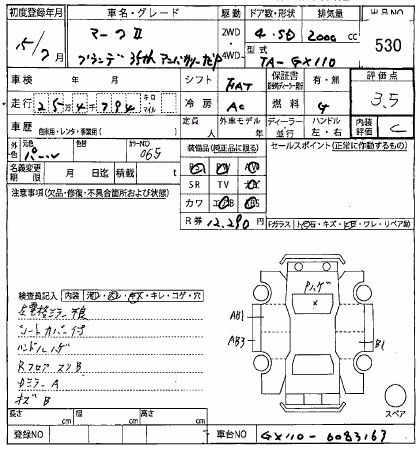 初度登録年月 車名・グレード 駆動 ドア数・形状 排気量 出品NO
15/7 マークⅡ 2WD 4.SD 2000 cc 530
グランデ 35th アニバーサリーEdP 4WD 型式 TA-GX110
車検 年 月 シフト FAT 保証書 有・無 評価点
走行 25万4千794 キロ・マイル 冷房 AC 燃料 G 3.5
車歴 自家用・レンタ・事業用( ) 定員 人 外車モデル 年 ディーラー 並行 ハンドル 左・右 内装評価 C
外色 元色 パール 色替 カラーNO 065 装備品(純正品に限る) セールスポイント(正常に作動するもの)
名義変更期限 月 日迄 積載 t SR TV
注意事項(欠品・修復・不具合箇所および状態) カワ
R券 12.290円
Fガラス
検査員記入 内装 ヨゴレ・コゲ・穴
左電格ミラー不良
シートカバー付
ハンドルハゲ
Rフロア スリB
Dミラー A
キズ B
Pハゲ
×
AB1
AB3
B1
スペア
長さ cm 幅 cm 高さ cm
登録NO 車台NO GX110-6083163